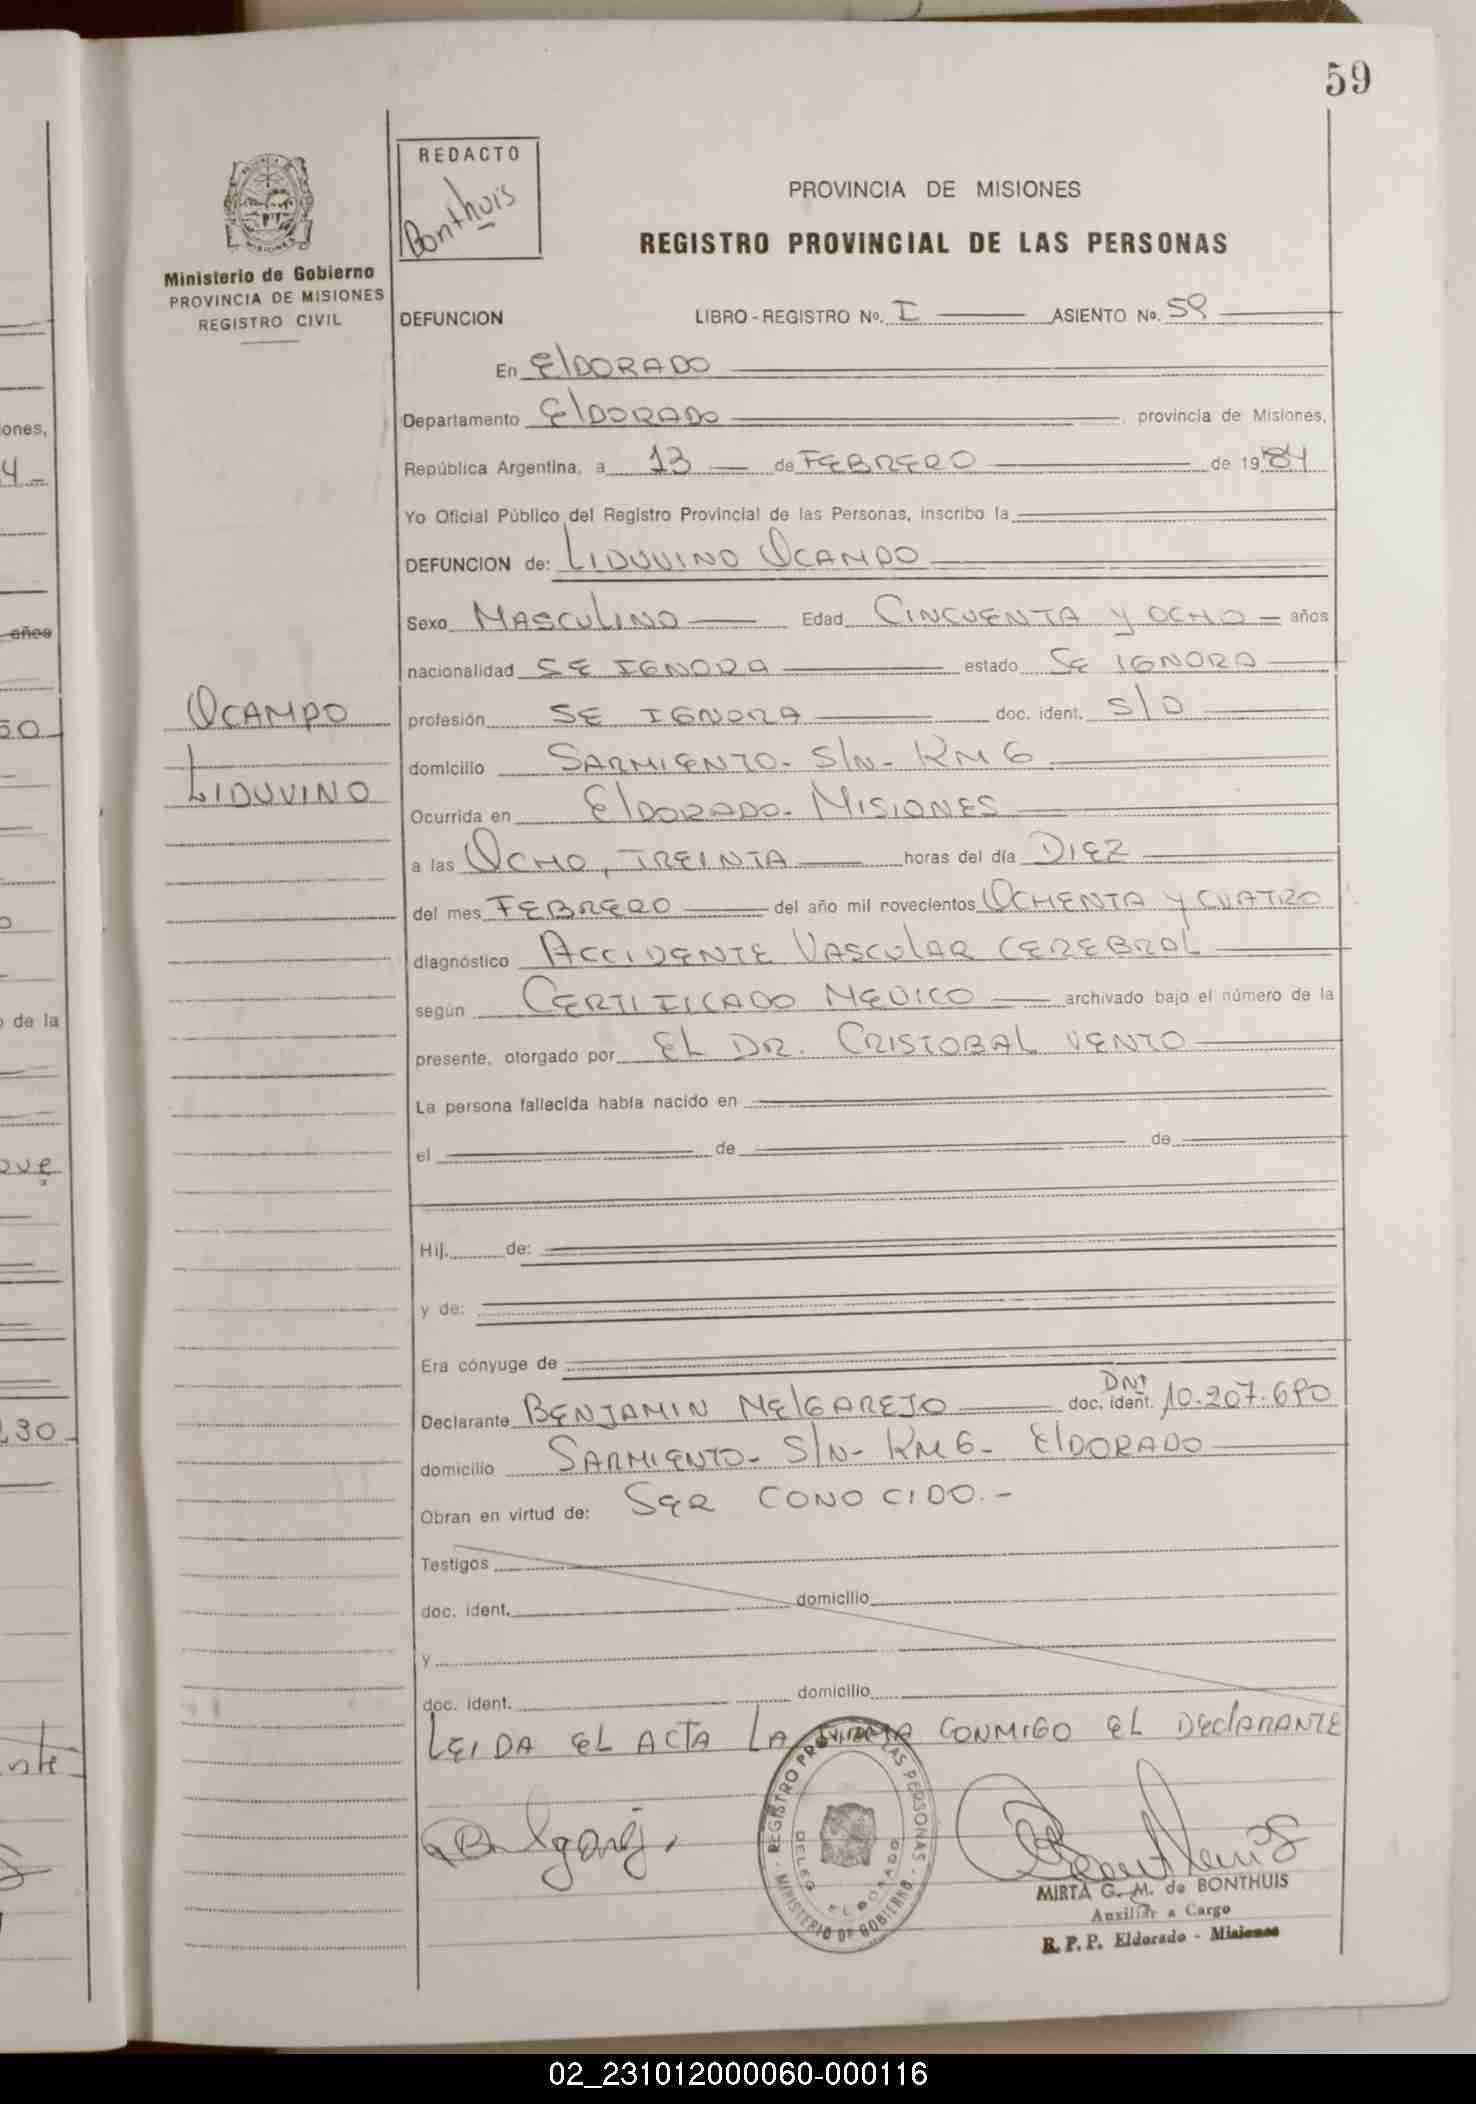 59
REDACTO
Bonthuis
PROVINCIA DE MISIONES
REGISTRO PROVINCIAL DE LAS PERSONAS
Ministerio de Gobierno
PROVINCIA DE MISIONES
REGISTRO CIVIL
DEFUNCION LIBRO - REGISTRO Nº. I ASIENTO Nº. 59
En ElDORADO
Departamento ElDORADO provincia de Misiones,
República Argentina, a 13 de FEBRERO de 1984
Yo Oficial Público del Registro Provincial de las Personas, inscribo la
DEFUNCION de: LIDUVINO OCAMPO
Sexo MASCULINO Edad CINCUENTA y OCHO años
nacionalidad SE IGNORA estado SE IGNORA
OCAMPO
LIDUVINO
profesión SE IGNORA doc. ident. S/D
domicilio SARMIENTO- S/N- KM 6
Ocurrida en ElDORADO- MISIONES
a las OCHO, TREINTA horas del día DIEZ
del mes FEBRERO del año mil novecientos OCHENTA y CUATRO
diagnóstico ACCIDENTE VASCULAR CEREBRAL
según CERTIFICADO MEDICO archivado bajo el número de la
presente, otorgado por EL DR. CRISTOBAL VENTO
La persona fallecida había nacido en
el de de
Hij. de:
y de:
Era cónyuge de
Declarante BENJAMIN MElGAREJO DNI doc. ident. 10.207.690
domicilio SARMIENTO- S/N- KM 6- ElDORADO
Obran en virtud de: SER CONOCIDO.-
Testigos
doc. ident. domicilio
y
doc. ident. domicilio
LEIDA EL ACTA LA FIRMA CONMIGO EL DEClARANTE
REGISTRO PROVINCIAL DE LAS PERSONAS
MINISTERIO DE GOBIERNO
DELEG ELDORADO
MIRTA G. M. de BONTHUIS
Auxiliar a Cargo
R. P. P. Eldorado - Misiones
ones,
4-
años
50
o de la
ove
230
nte
02_231012000060-000116